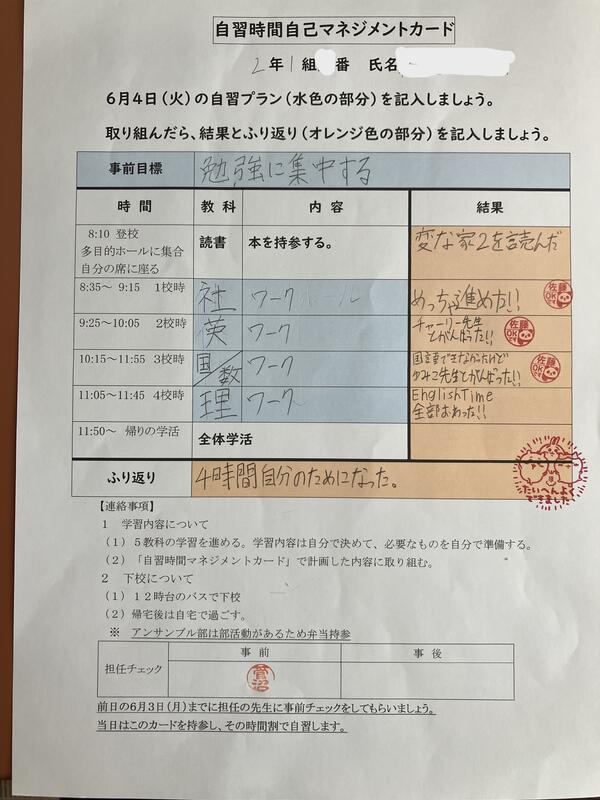 自習時間自己マネジメントカード
2年1組 番 氏名
6月4日(火)の自習プラン(水色の部分)を記入しましょう。
取り組んだら、結果とふり返り(オレンジ色の部分)を記入しましょう。
事前目標 勉強に集中する
時間 教科 内容 結果
8:10 登校
多目的ホールに集合
自分の席に座る
読書 本を持参する。 変な家2を読んだ
8:35~ 9:15 1校時 社 ワーク めっちゃ進めた!! 佐藤OKです
9:25~10:05 2校時 英 ワーク チャーリー先生
とがんばった!! 佐藤OKです
10:15~11:55 3校時 国/数 ワーク 国語できなかったけど
ゆみこ先生とがんばった!! 佐藤OKです
11:05~11:45 4校時 理 ワーク English Time
全部おわった!!
11:50~ 帰りの学活 全体学活
ふり返り 4時間自分のためになった。
たいへんよくできました
【連絡事項】
1 学習内容について
(1)5教科の学習を進める。学習内容は自分で決めて、必要なものを自分で準備する。
(2)「自習時間マネジメントカード」で計画した内容に取り組む。
2 下校について
(1)12時台のバスで下校
(2)帰宅後は自宅で過ごす。
※ アンサンブル部は部活動があるため弁当持参
担任チェック 事前 事後
菅沼
前日の6月3日(月)までに担任の先生に事前チェックをしてもらいましょう。
当日はこのカードを持参し、その時間割で自習します。